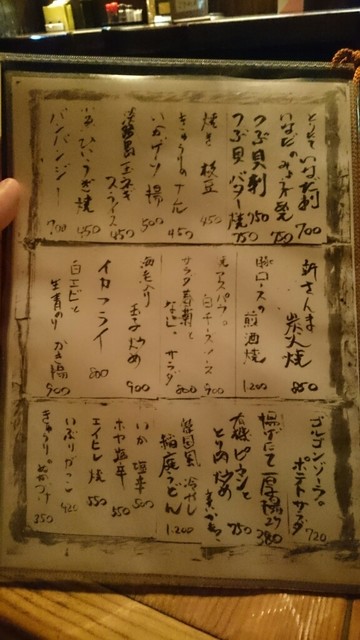 いなだ刺
700
いなだのみそ焼
750
つぶ貝刺
750
つぶ貝バター焼
750
焼き枝豆
450
きゅうりのナムル
450
いかゲソ揚
500
淡路島玉ネギ
スライス
450
450
バンバンジー
700
新さんま
炭火焼
850
豚ロースの
煎酒焼
1200
白チーズソース
900
サラダ春菊と
なし。サラダ
800
玉子炒め
900
イカフライ
800
白エビと
生青のり かき揚
900
ゴルゴンゾーラ。
ポテトサラダ
720
揚げたて厚揚
380
有機ピーマンと
とり炒め
750
韓国風 冷やし
稲庭うどん
1200
いか塩辛
500
ホヤ塩辛
550
エイヒレ焼
550
いぶりがっこ
420
きゅうり。ぬかづけ
350